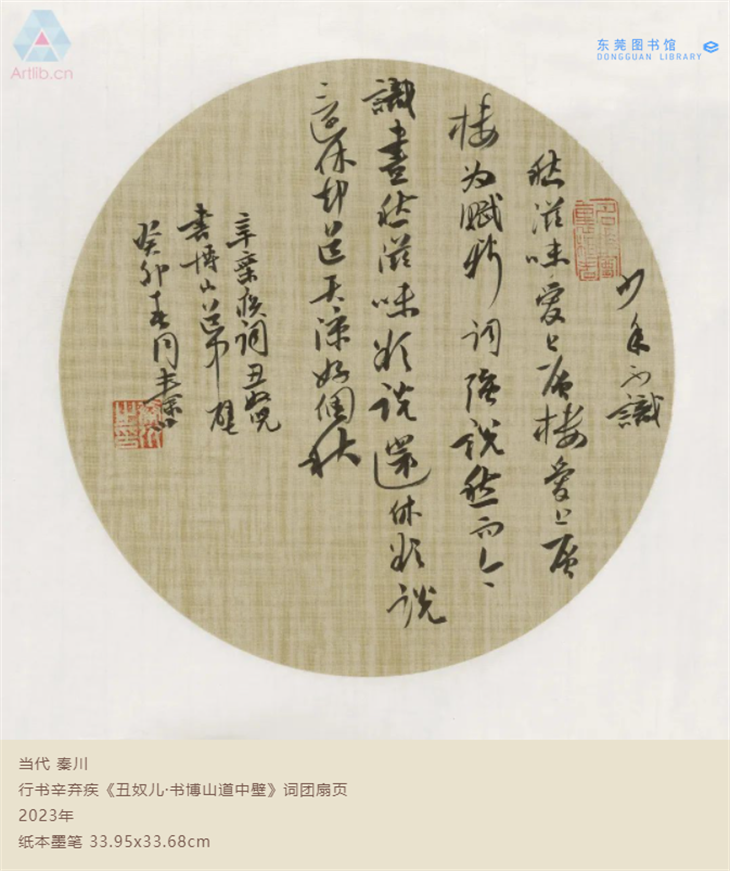 Artlib.cn
东莞图书馆
DONGGUAN LIBRARY
少年不識
愁滋味愛上層樓愛上層
樓为賦新词強说愁而今
識盡愁滋味欲说還休欲说
還休却道天凉好個秋
辛棄疾词丑奴兒
書博山道中壁
癸卯春月秦川
当代 秦川
行书辛弃疾《丑奴儿·书博山道中壁》词团扇页
2023年
纸本墨笔 33.95x33.68cm